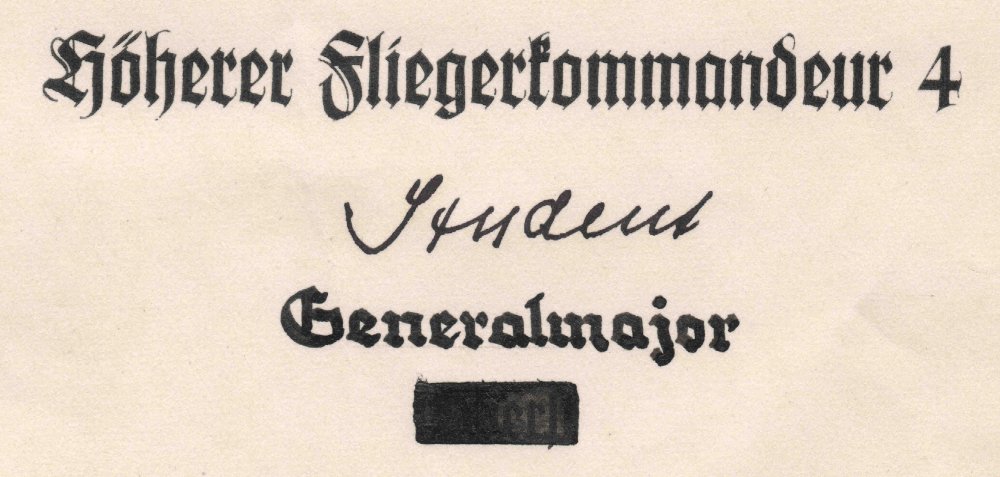 Höherer Fliegerkommandeur 4
Student
Generalmajor